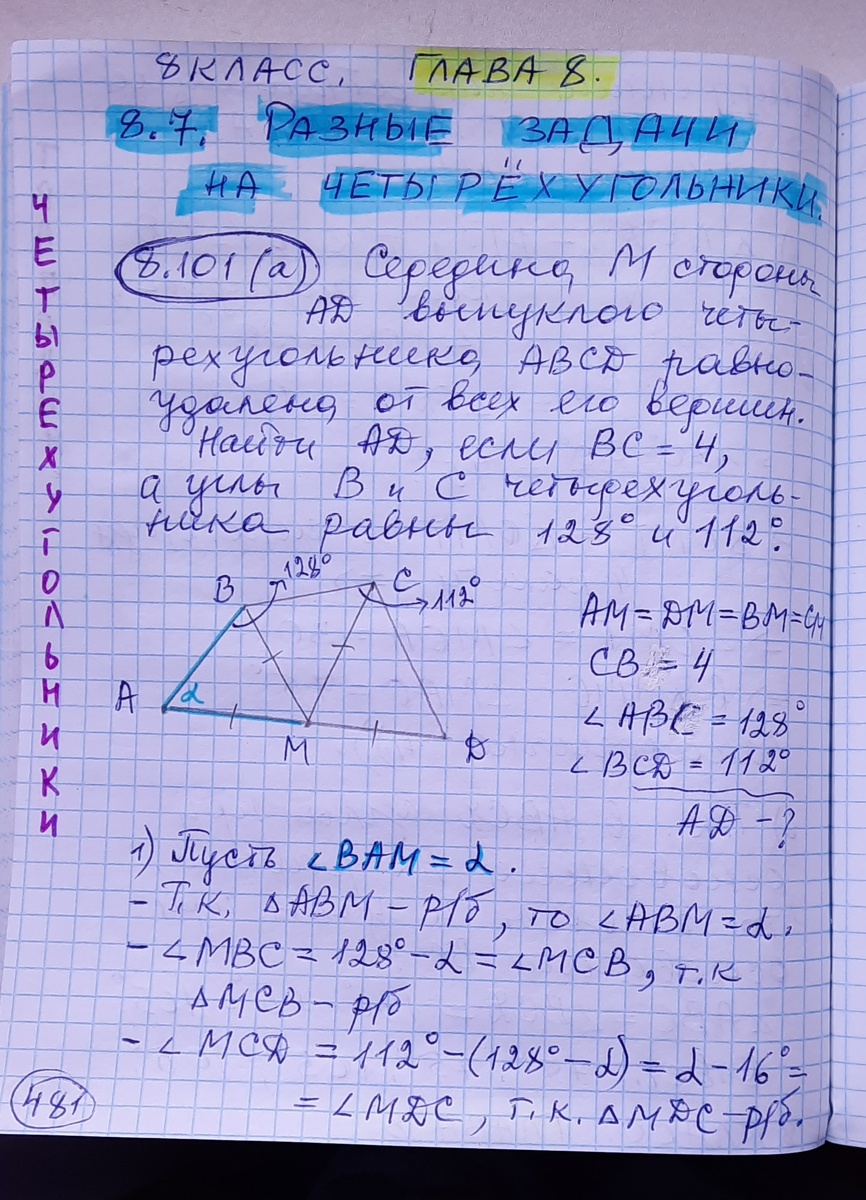 8 КЛАСС, ГЛАВА 8.
8.7. РАЗНЫЕ ЗАДАЧИ
НА ЧЕТЫРЁХУГОЛЬНИКИ.
ЧЕТЫРЕХУГОЛЬНИКИ
8.101(а) Середина М стороны
AD выпуклого четы-
рехугольника ABCD равно-
удалена от всех его вершин.
Найти AD, если BC = 4,
а углы B и C четырехуголь-
ника равны 128° и 112°.
B 128° C 112°
A α M D
AM = DM = BM = CM
CB = 4
∠ABC = 128°
∠BCD = 112°
AD - ?
1) Пусть ∠BAM = α.
- Т.к. △ABM - р/б, то ∠ABM = α.
- ∠MBC = 128° - α = ∠MCB, т.к
△MCB - р/б
- ∠MCD = 112° - (128° - α) = α - 16° =
= ∠MDC, т.к. △MDC - р/б.
481